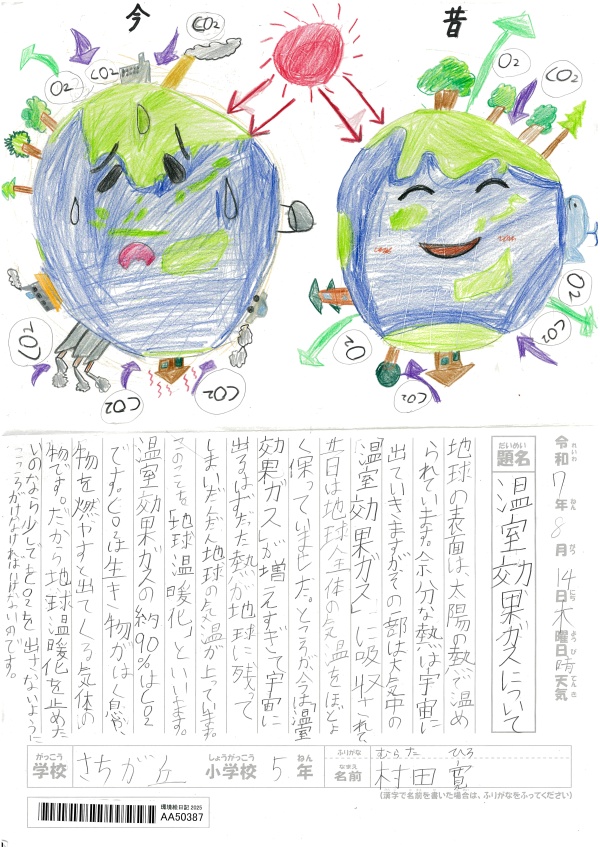 今
昔
CO2
CO2
O2
O2
CO2
O2
CO2
O2
CO2
CO2
CO2
CO2
だいめい
題名
温室効果ガスについて
令和7年8月14日木曜日晴天気
れいわ ねん がつ にち ようび てんき
地球の表面は、太陽の熱で温め
られています。余分な熱は宇宙に
出ていきますがその一部は大気中の
「温室効果ガス」に吸収されて、
昔は地球全体の気温をほどよ
く保っていました。ところが、今は「温室
効果ガス」が増えすぎて宇宙に
出るはずだった熱が地球に残って
しまいだんだん地球の気温が上っています。
このことを「地球温暖化」といいます。
温室効果ガスの約90%はCO2
です。CO2は生き物がはく息、
物を燃やすと出てくる気体の
物です。だから地球温暖化を止めた
いのなら少しでもCO2を出さないように
こころがけなければいけないのです。
がっこう
学校
さちが丘
しょうがっこう
小学校
5
ねん
年
ふりがな
むらた ひろ
なまえ
名前
村田 寛
(漢字で名前を書いた場合は、ふりがなをふってください)
環境絵日記 2025
AA50387